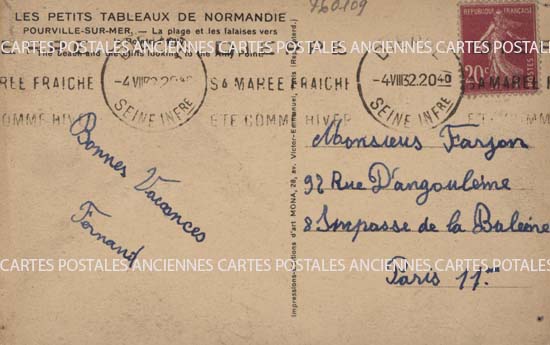 LES PETITS TABLEAUX DE NORMANDIE
760109
POURVILLE-SUR-MER. — La plage et les falaises vers
The beach and the cliffs looking to the Ailly Point.
RÉPUBLIQUE FRANÇAISE
20c
CARTES POSTALES ANCIENNES CARTES POSTALES ANCIENNES CARTES POTALES
-4 VIII 32. 20 40
SEINE INFRE
RÉE FRAICHE
SA MARÉE FRAICHE
-4 VIII 32. 20 40
SEINE INFRE
SA MARÉE
COMME HIVER
ÉTÉ COMME HIVER
ÉTÉ COMM
Bonnes Vacances
Fernand
Impressions-Editions d'art MONA, 28, av. Victor-Emmanuel, Paris
Monsieur Farjon
92 Rue D'angoulême
8 Impasse de la Baleine
CARTES POSTALES ANCIENNES CARTES POSTALES ANCIENNES CARTES POTALES
Paris 11me